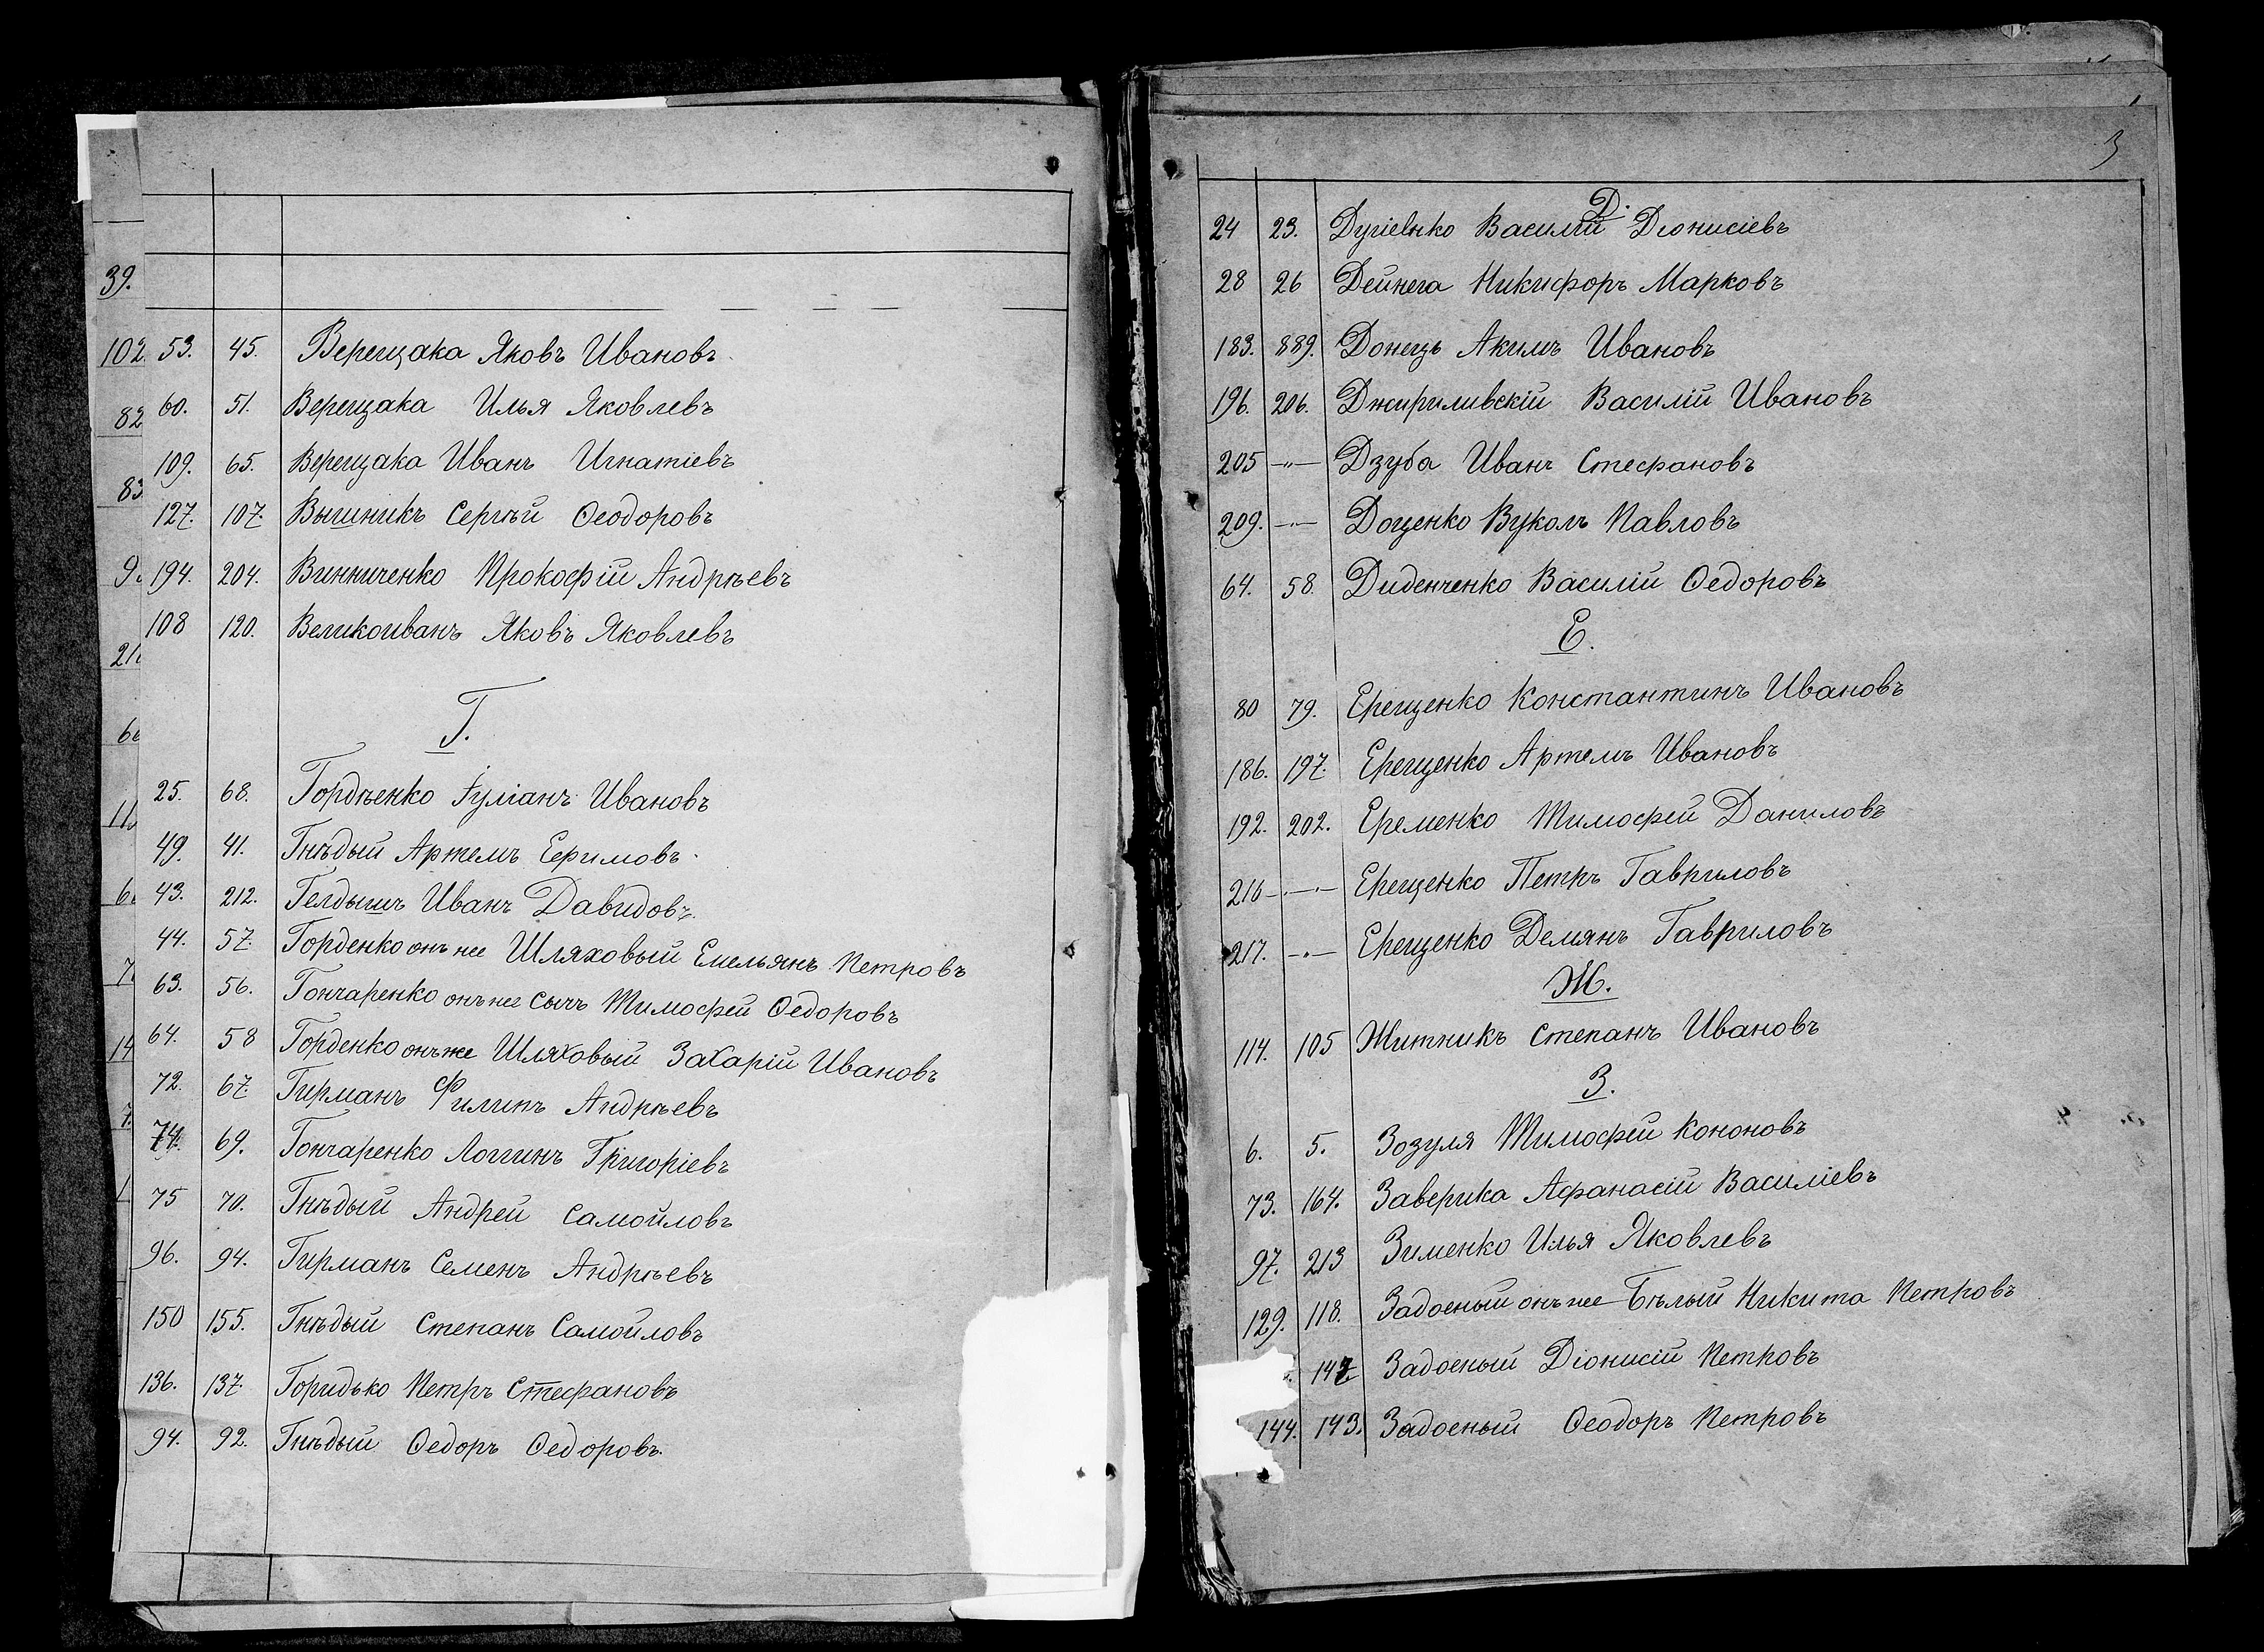 53. 45. Верещака Яковъ Ивановъ
60. 51. Верещака Илья Яковлевъ
109. 65. Верещака Иванъ Игнатіевъ
127. 107. Вышникъ Сергѣй Ѳеодоровъ
194. 204. Винниченко Прокофій Андрѣевъ
108 120. Великоиванъ Яковъ Яковлевъ
Г.
25. 68. Гордѣенко Іуліанъ Ивановъ
49. 41. Гнѣдый Артемъ Ефимовъ
43. 212. Гелдышъ Иванъ Давидовъ
44. 57. Горденко онъ же Шляховый Емельянъ Петровъ
63. 56. Гончаренко онъ же Сычъ Тимофей Ѳедоровъ
64. 58 Горденко онъ же Шляховый Захарій Ивановъ
72. 67. Гирманъ Филипъ Андрѣевъ
74. 69. Гончаренко Логгинъ Григоріевъ
75 70. Гнѣдый Андрей Самойловъ
96. 94. Гирманъ Семенъ Андрѣевъ
150 155. Гнѣдый Степанъ Самойловъ
136. 137. Горидько Петръ Стефановъ
94. 92. Гнѣдый Ѳедоръ Ѳедоровъ.
39.
102
82
83
3
Д.
24 23. Василій Діонисіевъ
28 26 Дейнега Никифоръ Марковъ
183. 889. Донецъ Акимъ Ивановъ
196. 206. Джириливскій Василій Ивановъ
205 —"— Дзуба Иванъ Стефановъ
209. —"— Доценко Вуколъ Павловъ
64. 58. Диденченко Василій Ѳедоровъ
Е.
80 79. Ерещенко Константинъ Ивановъ
186. 197. Ерещенко Артемъ Ивановъ
192. 202. Еременко Тимофей Даниловъ
216 —"— Ерещенко Петръ Гавриловъ
217. —"— Ерещенко Демянъ Гавриловъ
Ж.
114. 105 Житникъ Степанъ Ивановъ
З.
6. 5. Зозуля Тимофей Кононовъ
73. 164. Заверика Афанасій Василіевъ
97. 213 Зименко Илья Яковлевъ
129. 118. Задоеный онъ же Бѣлый Никита Петровъ
147 Задоеный Діонисій Петровъ
144. 143. Задоеный Ѳеодоръ Петровъ